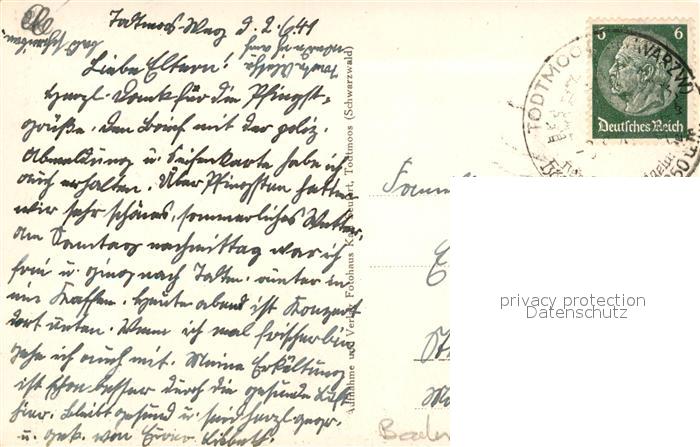 Todtmoos-Weg d. 2.6.41
Liebe Eltern!
Herzl. Dank für die Pfingst-
grüße. Den Brief mit der poliz.
Abmeldung u. Seifenkarte habe ich
auch erhalten. Über Pfingsten hatten
wir sehr schönes, sommerliches Wetter.
Am Samstag nachmittag war ich
frei u. ging nach Todtm. unter in
ein Kaffee. Heute abend ist Konzert
dort unten. Wenn ich mal frischer bin
gehe ich auch mit. Meine Erkältung
ist schon besser durch die gesunde Luft
hier. Bleibt gesund u. seid herzl. gegr.
u. gek. von Eurer Lisbeth.
Aufnahme und Verlag Fotohaus Todtmoos (Schwarzwald)
6 6
Deutsches Reich
TODTMOOS SCHWARZW
Famil
privacy protection
Datenschutz
Baden